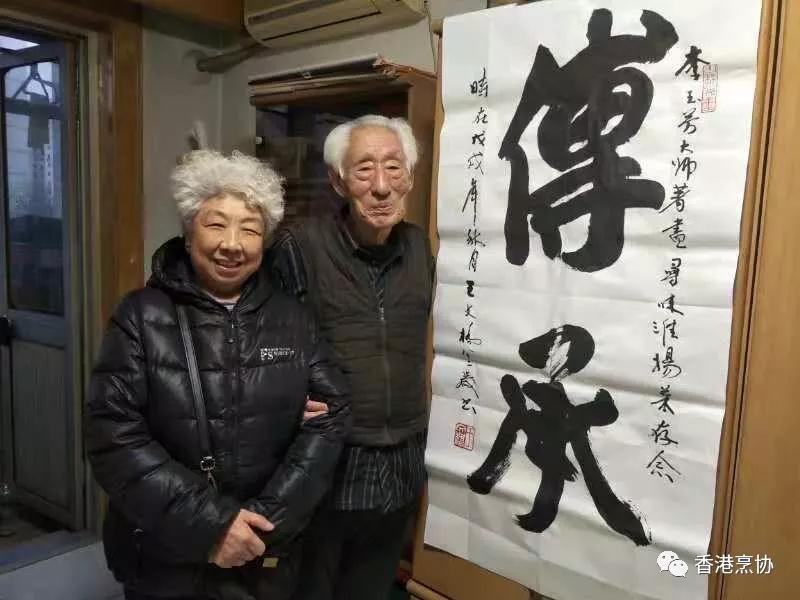 李玉芳大师著畫尋味淮揚菜存念
傳承
時在戊戌年秋月王文橋歲书
香港烹协